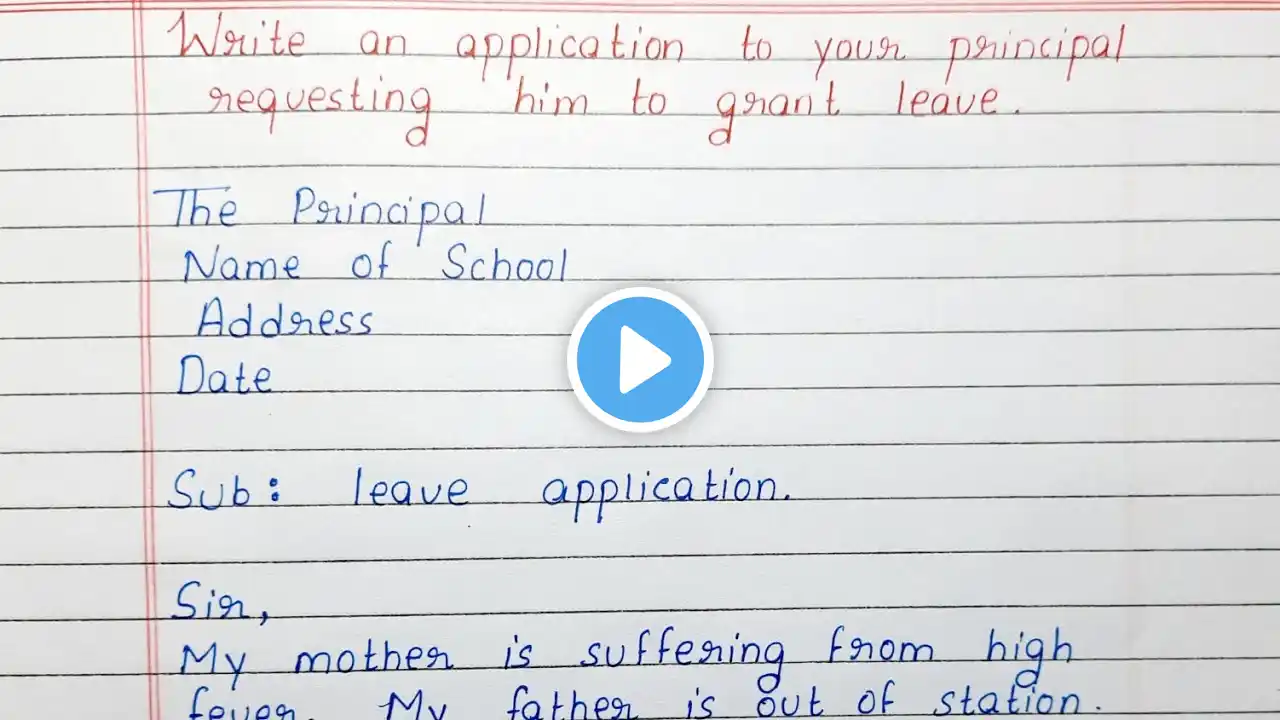 Write an application to your principal
requesting him to grant leave.
The Principal
Name of School
Address
Date
Sub: leave application.
Sir,
My mother is suffering from high
fever. My father is out of station.